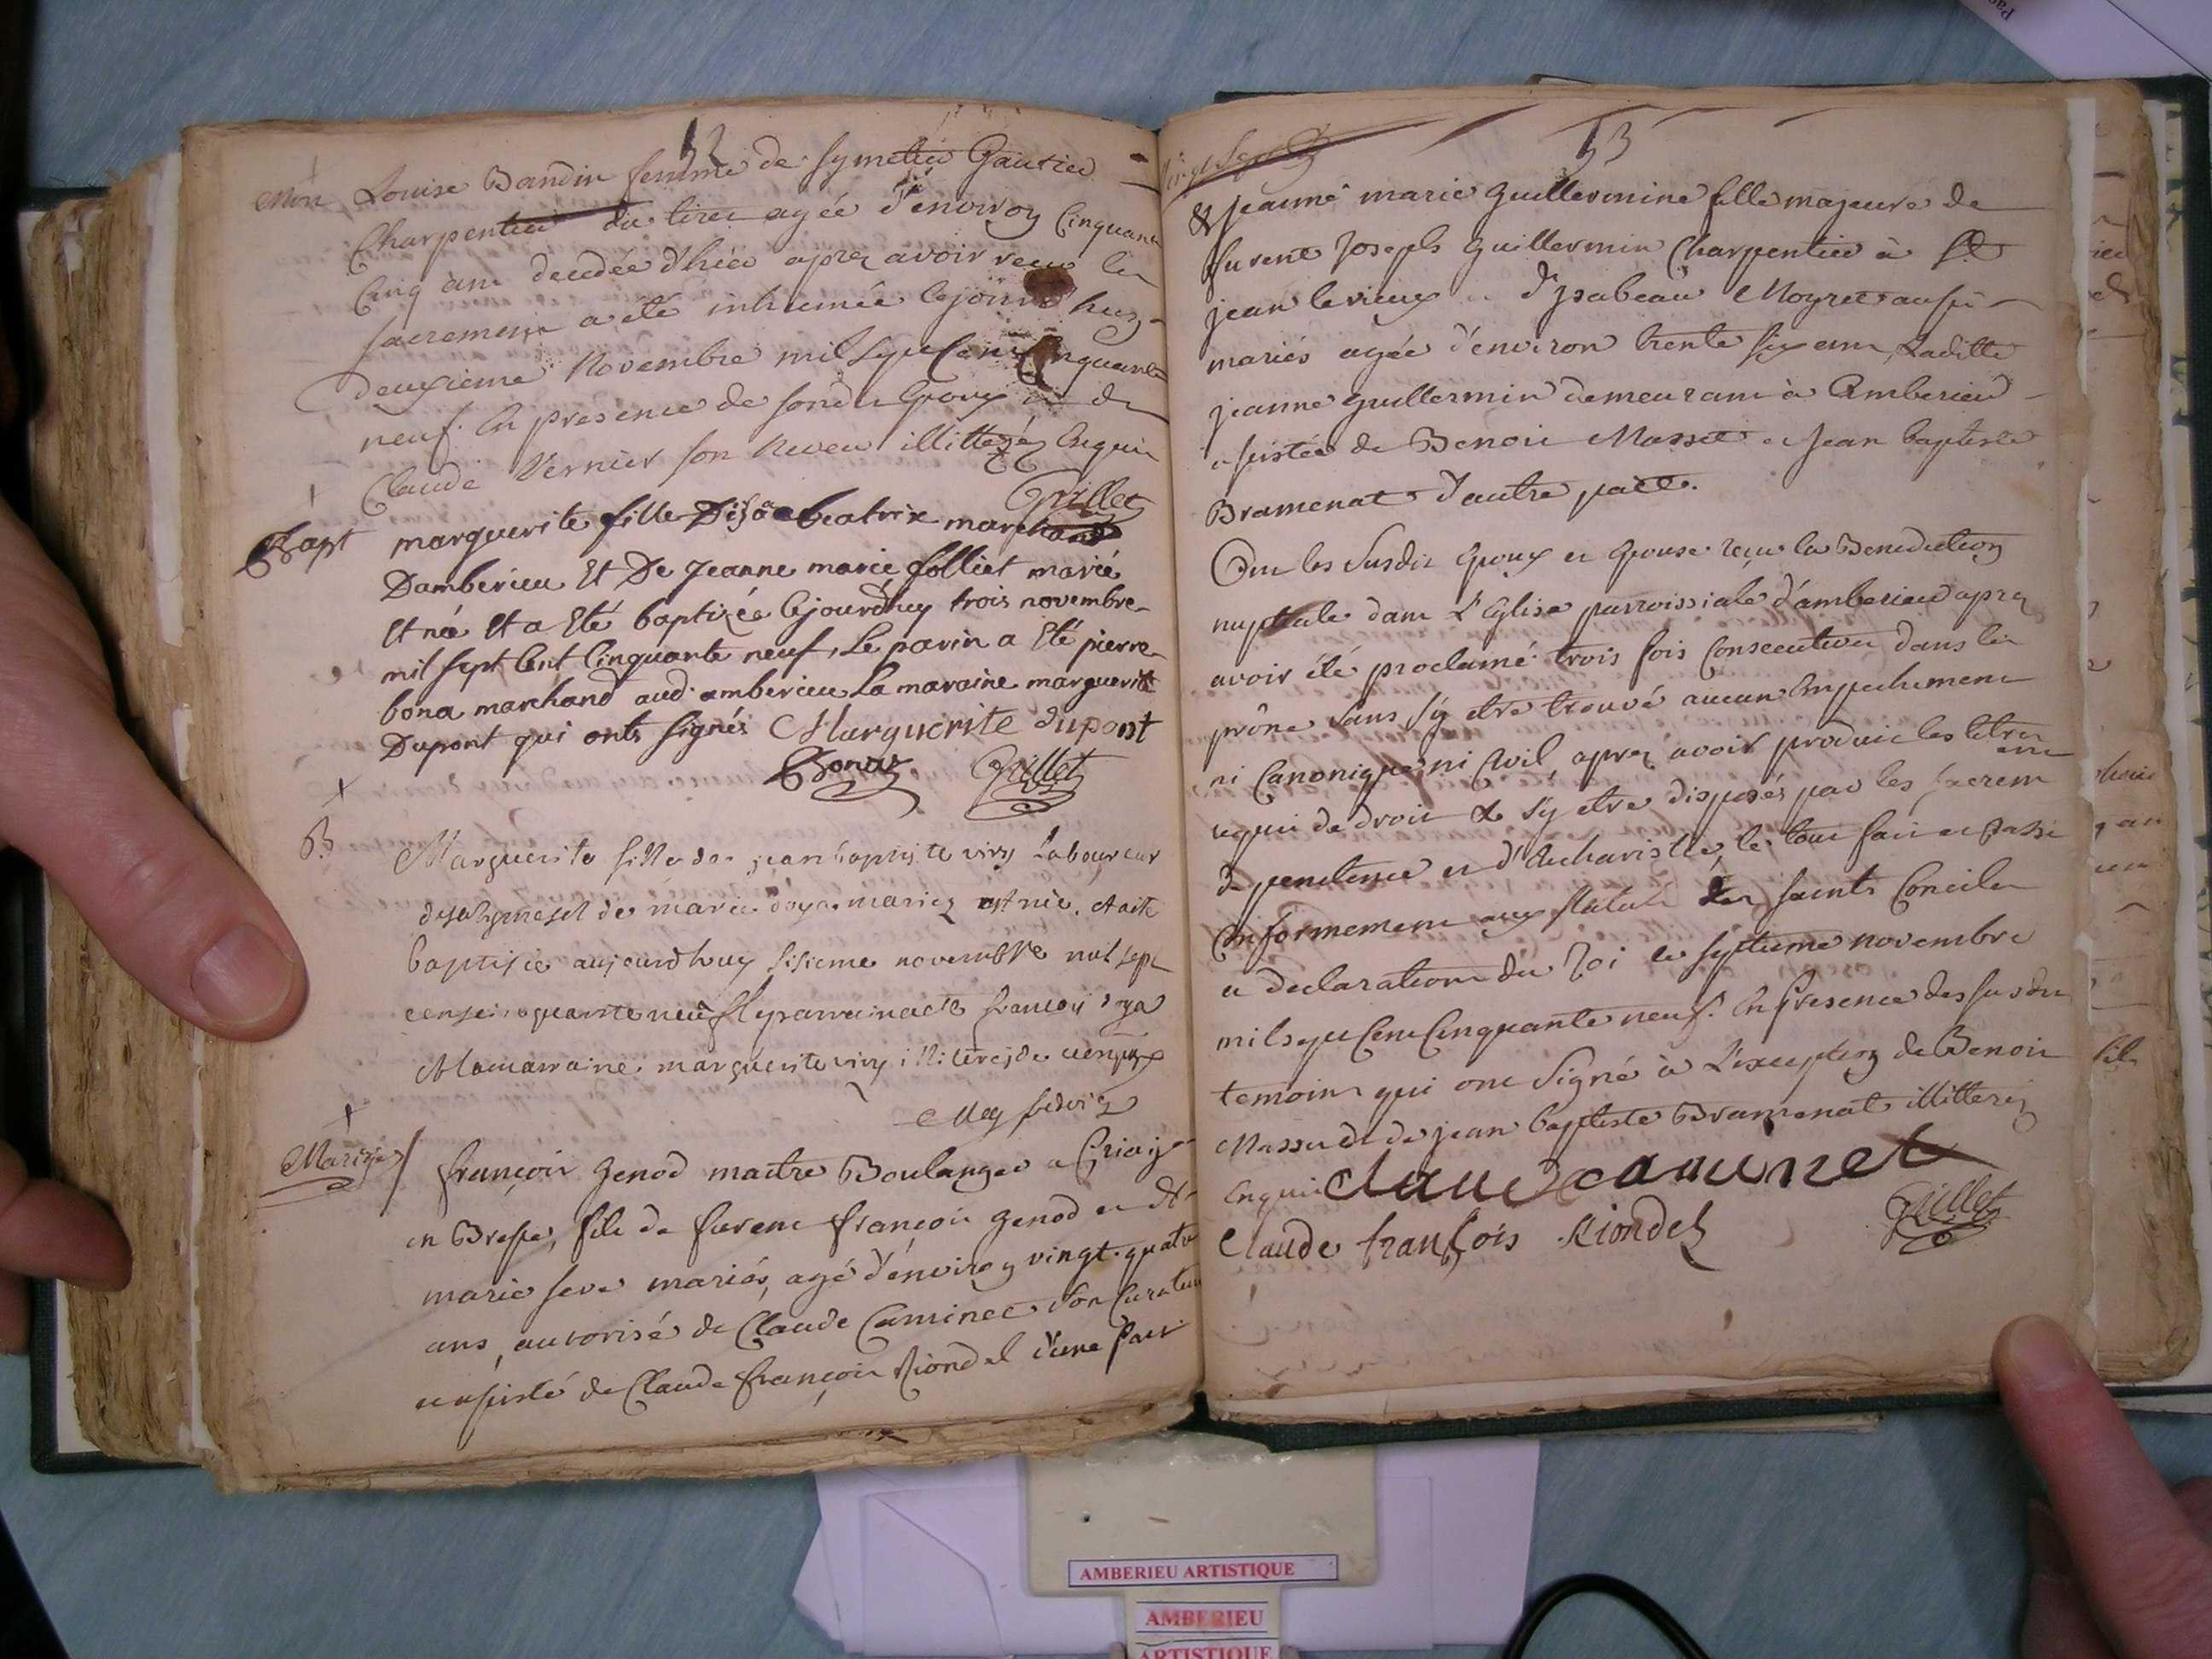 52
Mort Louise Bandin femme de Symetier Gautier
Charpentier du tiret agée d'environ Cinquante
Cinq ans decedée d'hier aprez avoir reçu les
sacremens a été inhumée cejourd'huy
deuxieme Novembre mil sept Cent Cinquante
neuf. En presence de sondit Epoux et de
Claude Vernier son Neveu illitteréz Enquis
Grillet
Bapt marguerite fille beatrix marchand
Damberieu Et De Jeanne marie folliet mariés
Et née Et a Eté baptizée Cejourdhuy trois novembre
mil sept Cent Cinquante neuf, Le parin a Eté pierre
bona marchand aud. amberieu La maraine marguerite
Dupont qui onts signés Marguerite dupont
Bonaz Grillet
B
Marguerite fille de jean baptiste viry laboureur
de marie doya mariez est née, et a ete
baptisée aujourdhuy sisieme novembre mil sept
cens cinquante neuf le parrain a ete francois doya
et la marraine marguerite viry illiterez de
Mariage françois Genod maitre Boulanger a
en Bresse, fils de furent françois Genod et de
marie seve mariés, agé d'environ vingt-quatre
ans, autorisé de Claude Caminet son Curateur
et assisté de Claude françois Riondel d'une part
53
& jeanne marie Guillermine fille majeure de
furent Joseph Guillermin Charpentier à St
jean le vieux et d'Isabeau Moyret aussi
mariés agée d'environ trente six ans, Laditte
jeanne Guillermin demeurant à Amberieu
assistée de Benoit Masset et Jean baptiste
Bramenat d'autre part.
Ont les susdits Epoux et Epouse reçu la Benediction
nuptiale dans L'Eglise parroissiale d'amberieu aprez
avoir été proclamé trois fois Consecutives dans les
prône sans s'y etre trouvé aucun Empechement
ni Canonique ni Civil, aprez avoir produit les titres
requis de droit & s'y etre disposés par les sacremens
de penitence et d'Eucharistie, le tout fait et Passé
Conformement aux statuts des saints Conciles
et declarations du Roi le septieme novembre
mil sept Cent Cinquante neuf. En Presence des susdits
temoins qui ont signé à L'exception de Benoit
Masset et de jean baptiste Bramenat illitterez
Enquis Claude caminet
Claude franſois Riondel Grillet
AMBERIEU ARTISTIQUE
AMBERIEU
ARTISTIQUE